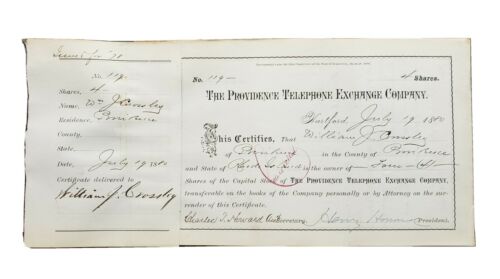 No. 119
Shares, 4
Name, Wm J Crossley
Residence, Providence
County,
State,
Date, July 19 1880
Certificate delivered to
William J. Crossley
No. 119 4 Shares.
THE PROVIDENCE TELEPHONE EXCHANGE COMPANY.
Hartford July 19 1880
This Certifies, That William J. Crossley
of Providence in the County of Providence
and State of Rhode Island is the owner of Four (4)
Shares of the Capital Stock of THE PROVIDENCE TELEPHONE EXCHANGE COMPANY,
transferable on the books of the Company personally or by Attorney on the sur-
render of this Certificate.
Charles T. Howard Secretary. Henry Howard President.